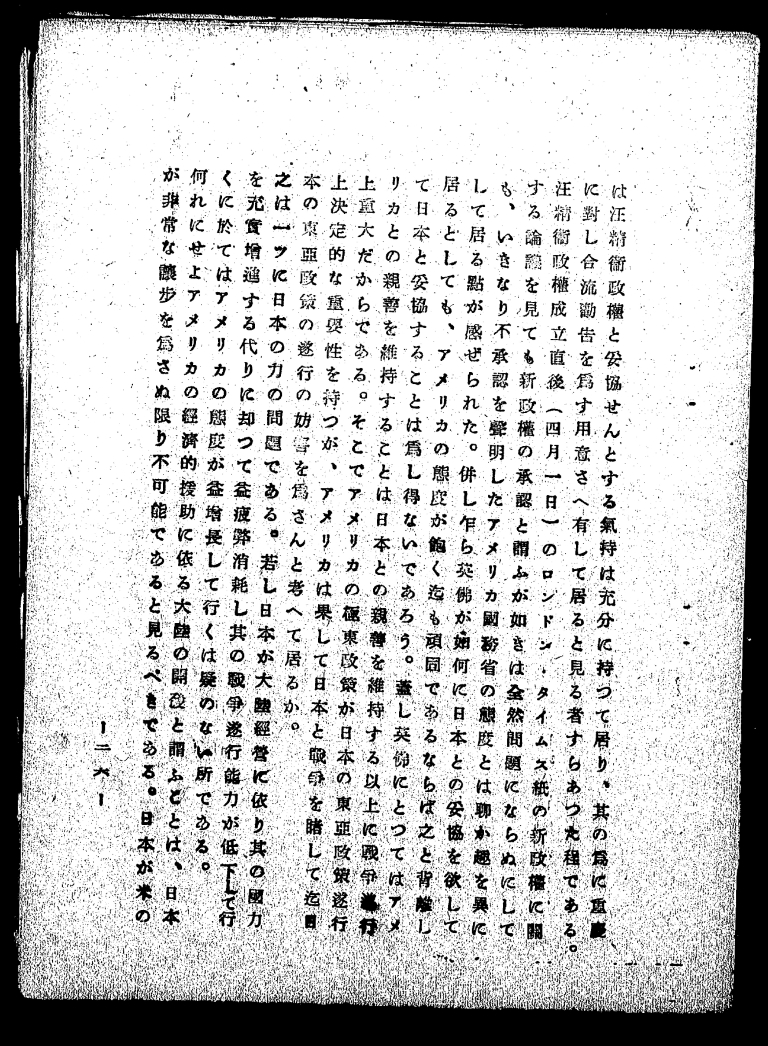 は汪精衞政權と妥協せんとする氣持は充分に持つて居り、其の爲に重慶
に對し合流勸告を爲す用意さへ有して居ると見る者すらあつた程である。
汪精衞政權成立直後（四月一日）のロンドン・タイムス紙の新政權に關
する論議を見ても新政權の承認と謂ふが如きは全然問題にならぬにして
も、いきなり不承認を聲明したアメリカ國務省の態度とは聊か趣を異に
して居る點が感ぜられた。併し乍ら英佛が如何に日本との妥協を欲して
居るとしても、アメリカの態度が飽く迄も頑固であるならば之と背離し
て日本と妥協することは爲し得ないであろう。蓋し英佛にとつてはアメ
リカとの親善を維持することは日本との親善を維持する以上に戰爭遂行
上重大だからである。そこでアメリカの極東政策が日本の東亞政策遂行
上決定的な重要性を持つが、アメリカは果して日本と戰爭を賭して迄日
本の東亞政策の遂行の妨害を爲さんと考へて居るか。
之は一ツに日本の力の問題である。若し日本が大陸經營に依り其の國力
を充實增進する代りに却つて益疲弊消耗し其の戰爭遂行能力が低下して行
くに於てはアメリカの態度が益增長して行くは疑のない所である。
何れにせよアメリカの經濟的援助に依る大陸の開發と謂ふことは、日本
が非常な讓步を爲さぬ限り不可能であると見るべきである。日本が米の
ー二六ー